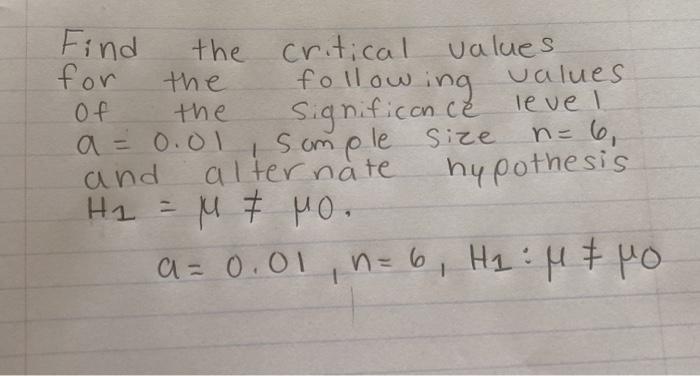 Find the critical values
for the following values
of the significance level
a = 0.01, sample size n= 6,
and alternate hypothesis
H1 = μ ≠ μ0.
a = 0.01, n= 6, H1: μ ≠ μ0